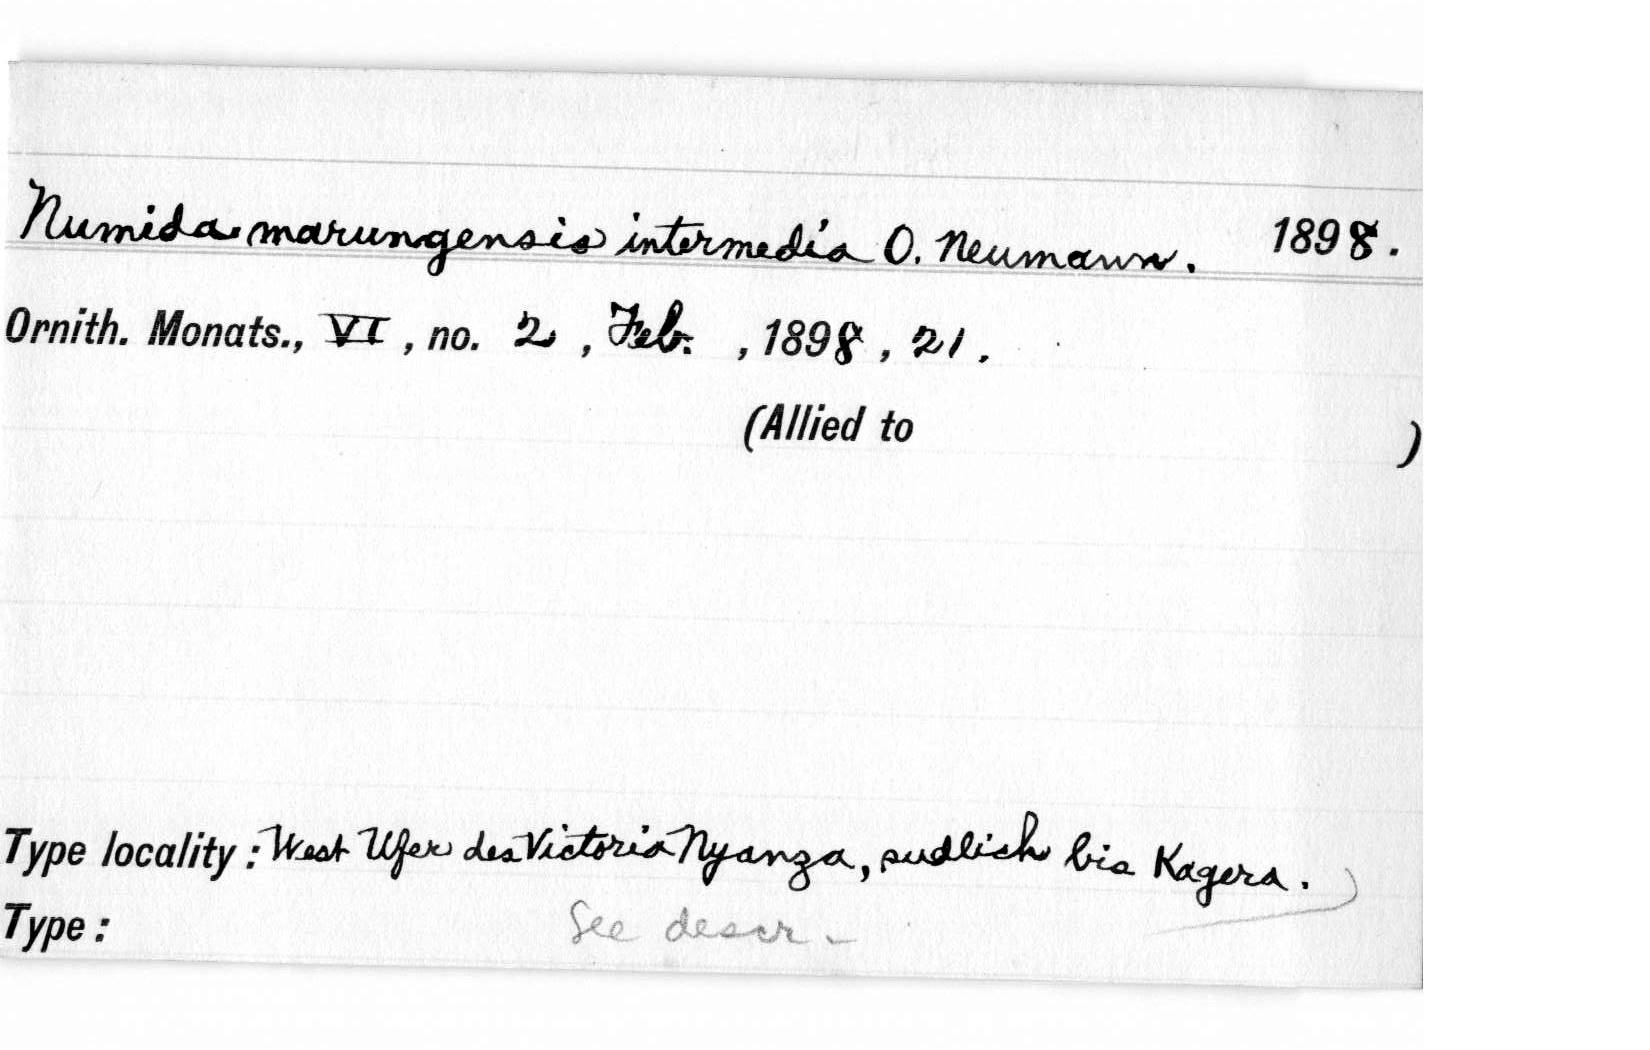 Numida marungensis intermedia O. Neumann. 1898.
Ornith. Monats., VI, no. 2, Feb., 1898, 21.
(Allied to )
Type locality: West Ufer des Victoria Nyanza, sudlich bis Kagera.
Type: See descr.